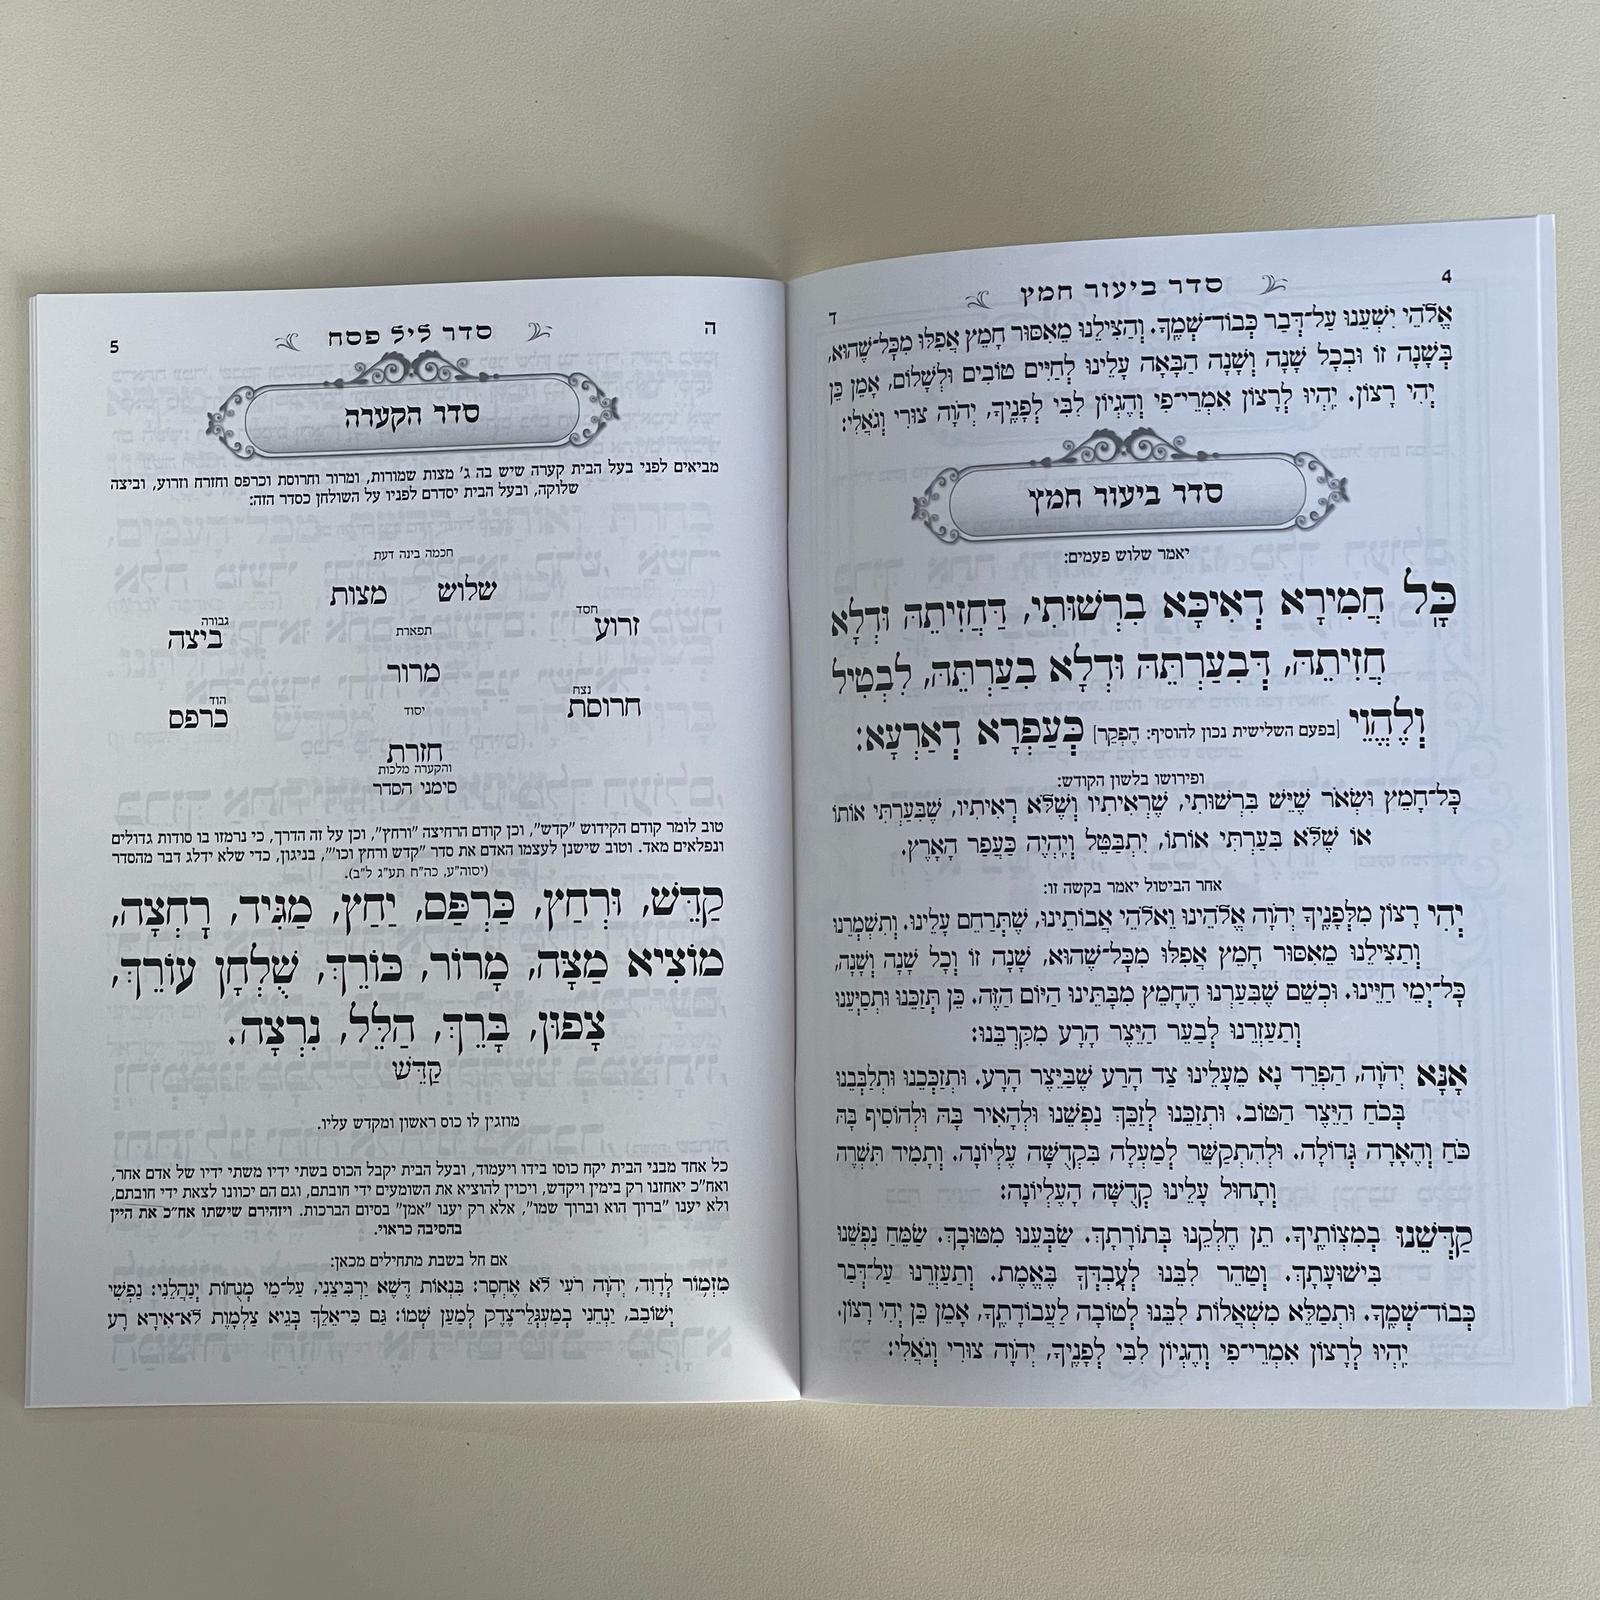 4
סדר ביעור חמץ
ד
אֱלֹהֵי יִשְׁעֵנוּ עַל־דְּבַר כְּבוֹד־שְׁמֶךָ. וְהַצִּילֵנוּ מֵאִסּוּר חָמֵץ אֲפִלּוּ מִכָּל־שֶׁהוּא,
בְּשָׁנָה זוֹ וּבְכָל שָׁנָה וְשָׁנָה הַבָּאָה עָלֵינוּ לְחַיִּים טוֹבִים וּלְשָׁלוֹם, אָמֵן כֵּן
יְהִי רָצוֹן. יִהְיוּ לְרָצוֹן אִמְרֵי־פִי וְהֶגְיוֹן לִבִּי לְפָנֶיךָ, יְהֹוָה צוּרִי וְגֹאֲלִי:
סדר ביעור חמץ
יאמר שלוש פעמים:
כָּל חֲמִירָא דְאִיכָּא בִרְשׁוּתִי, דַּחֲזִיתֵהּ וּדְלָא
חֲזִיתֵהּ, דְּבִעַרְתֵּהּ וּדְלָא בִעַרְתֵּהּ, לִבְטִיל
וְלֶהֱוֵי [בפעם השלישית נכון להוסיף: הֶפְקֵר] כְּעַפְרָא דְאַרְעָא:
ופירושו בלשון הקודש:
כָּל־חָמֵץ וּשְׂאֹר שֶׁיֵּשׁ בִּרְשׁוּתִי, שֶׁרְאִיתִיו וְשֶׁלֹּא רְאִיתִיו, שֶׁבִּעַרְתִּי אוֹתוֹ
אוֹ שֶׁלֹּא בִּעַרְתִּי אוֹתוֹ, יִתְבַּטֵּל וְיִהְיֶה כַּעֲפַר הָאָרֶץ.
אחר הביטול יאמר בקשה זו:
יְהִי רָצוֹן מִלְּפָנֶיךָ יְהֹוָה אֱלֹהֵינוּ וֵאלֹהֵי אֲבוֹתֵינוּ, שֶׁתְּרַחֵם עָלֵינוּ. וְתִשְׁמְרֵנוּ
וְתַצִּילֵנוּ מֵאִסּוּר חָמֵץ אֲפִלּוּ מִכָּל־שֶׁהוּא, שָׁנָה זוֹ וְכָל שָׁנָה וְשָׁנָה,
כָּל־יְמֵי חַיֵּינוּ. וּכְשֵׁם שֶׁבִּעַרְנוּ הֶחָמֵץ מִבָּתֵּינוּ הַיּוֹם הַזֶּה. כֵּן תְּזַכֵּנוּ וּתְסַיְּעֵנוּ
וְתַעְזְרֵנוּ לְבַעֵר הַיֵּצֶר הָרָע מִקִּרְבֵּנוּ:
אָנָּא יְהֹוָה, הַפְרֵד נָא מֵעָלֵינוּ צַד הָרַע שֶׁבַּיֵּצֶר הָרָע. וּתְזַכְּכֵנוּ וּתְלַבְּבֵנוּ
בְּכֹחַ הַיֵּצֶר הַטּוֹב. וּתְזַכֵּנוּ לְזַכֵּךְ נַפְשֵׁנוּ וּלְהָאִיר בָּהּ וּלְהוֹסִיף בָּהּ
כֹּחַ וְהֶאָרָה גְּדוֹלָה. וּלְהִתְקַשֵּׁר לְמַעְלָה בִּקְדֻשָּׁה עֶלְיוֹנָה. וְתָמִיד תִּשְׁרֶה
וְתָחוּל עָלֵינוּ קְדֻשָּׁה הָעֶלְיוֹנָה:
קַדְּשֵׁנוּ בְּמִצְוֹתֶיךָ. תֵּן חֶלְקֵנוּ בְּתוֹרָתֶךָ. שַׂבְּעֵנוּ מִטּוּבָךְ. שַׂמֵּחַ נַפְשֵׁנוּ
בִּישׁוּעָתָךְ. וְטַהֵר לִבֵּנוּ לְעָבְדְּךָ בֶּאֱמֶת. וְתַעְזְרֵנוּ עַל־דְּבַר
כְּבוֹד־שְׁמֶךָ. וּתְמַלֵּא מִשְׁאֲלוֹת לִבֵּנוּ לְטוֹבָה לַעֲבוֹדָתֶךָ, אָמֵן כֵּן יְהִי רָצוֹן.
יִהְיוּ לְרָצוֹן אִמְרֵי־פִי וְהֶגְיוֹן לִבִּי לְפָנֶיךָ, יְהֹוָה צוּרִי וְגֹאֲלִי:
ה
סדר ליל פסח
5
סדר הקערה
מביאים לפני בעל הבית קערה שיש בה ג' מצות שמורות, ומרור וחרוסת וכרפס וחזרת וזרוע, וביצה
שלוקה, ובעל הבית יסדרם לפניו על השולחן כסדר הזה:
חכמה בינה דעת
שלוש מצות
חסד
זרוע
גבורה
ביצה
תפארת
מרור
נצח
חרוסת
הוד
כרפס
יסוד
חזרת
והקערה מלכות
סימני הסדר
טוב לומר קודם הקידוש "קדש", וכן קודם הרחיצה "ורחץ", וכן על זה הדרך, כי נרמזו בו סודות גדולים
ונפלאים מאד. וטוב שישנן לעצמו האדם את סדר "קדש ורחץ וכו'", בניגון, כדי שלא ידלג דבר מהסדר
(יסוה"ע, כה"ח תע"ג ל"ב).
קַדֵּשׁ, וּרְחַץ, כַּרְפַּס, יַחַץ, מַגִּיד, רָחְצָה,
מוֹצִיא מַצָּה, מָרוֹר, כּוֹרֵךְ, שֻׁלְחָן עוֹרֵךְ,
צָפוּן, בָּרֵךְ, הַלֵּל, נִרְצָה.
קַדֵּשׁ
מוזגין לו כוס ראשון ומקדש עליו.
כל אחד מבני הבית יקח כוסו בידו ויעמוד, ובעל הבית יקבל הכוס בשתי ידיו משתי ידיו של אדם אחר,
ואח"כ יאחזנו רק בימין ויקדש, ויכוין להוציא את השומעים ידי חובתם, וגם הם יכוונו לצאת ידי חובתם,
ולא יענו "ברוך הוא וברוך שמו", אלא רק יענו "אמן" בסיום הברכות. ויזהירם שישתו אח"כ את היין
בהסיבה כראוי.
אם חל בשבת מתחילים מכאן:
מִזְמוֹר לְדָוִד, יְהֹוָה רֹעִי לֹא אֶחְסָר: בִּנְאוֹת דֶּשֶׁא יַרְבִּיצֵנִי, עַל־מֵי מְנֻחוֹת יְנַהֲלֵנִי: נַפְשִׁי
יְשׁוֹבֵב, יַנְחֵנִי בְמַעְגְּלֵי־צֶדֶק לְמַעַן שְׁמוֹ: גַּם כִּי־אֵלֵךְ בְּגֵיא צַלְמָוֶת לֹא־אִירָא רָע